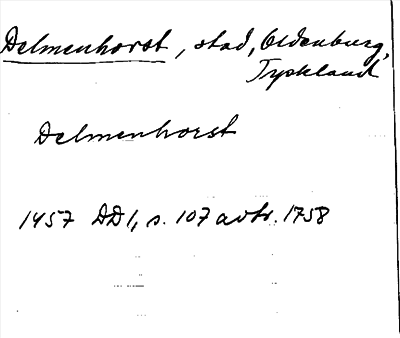 Delmenhorst, stad, Oldenburg,
Tyskland
Delmenhorst
1457 DD1, s. 107 avtr. 1758